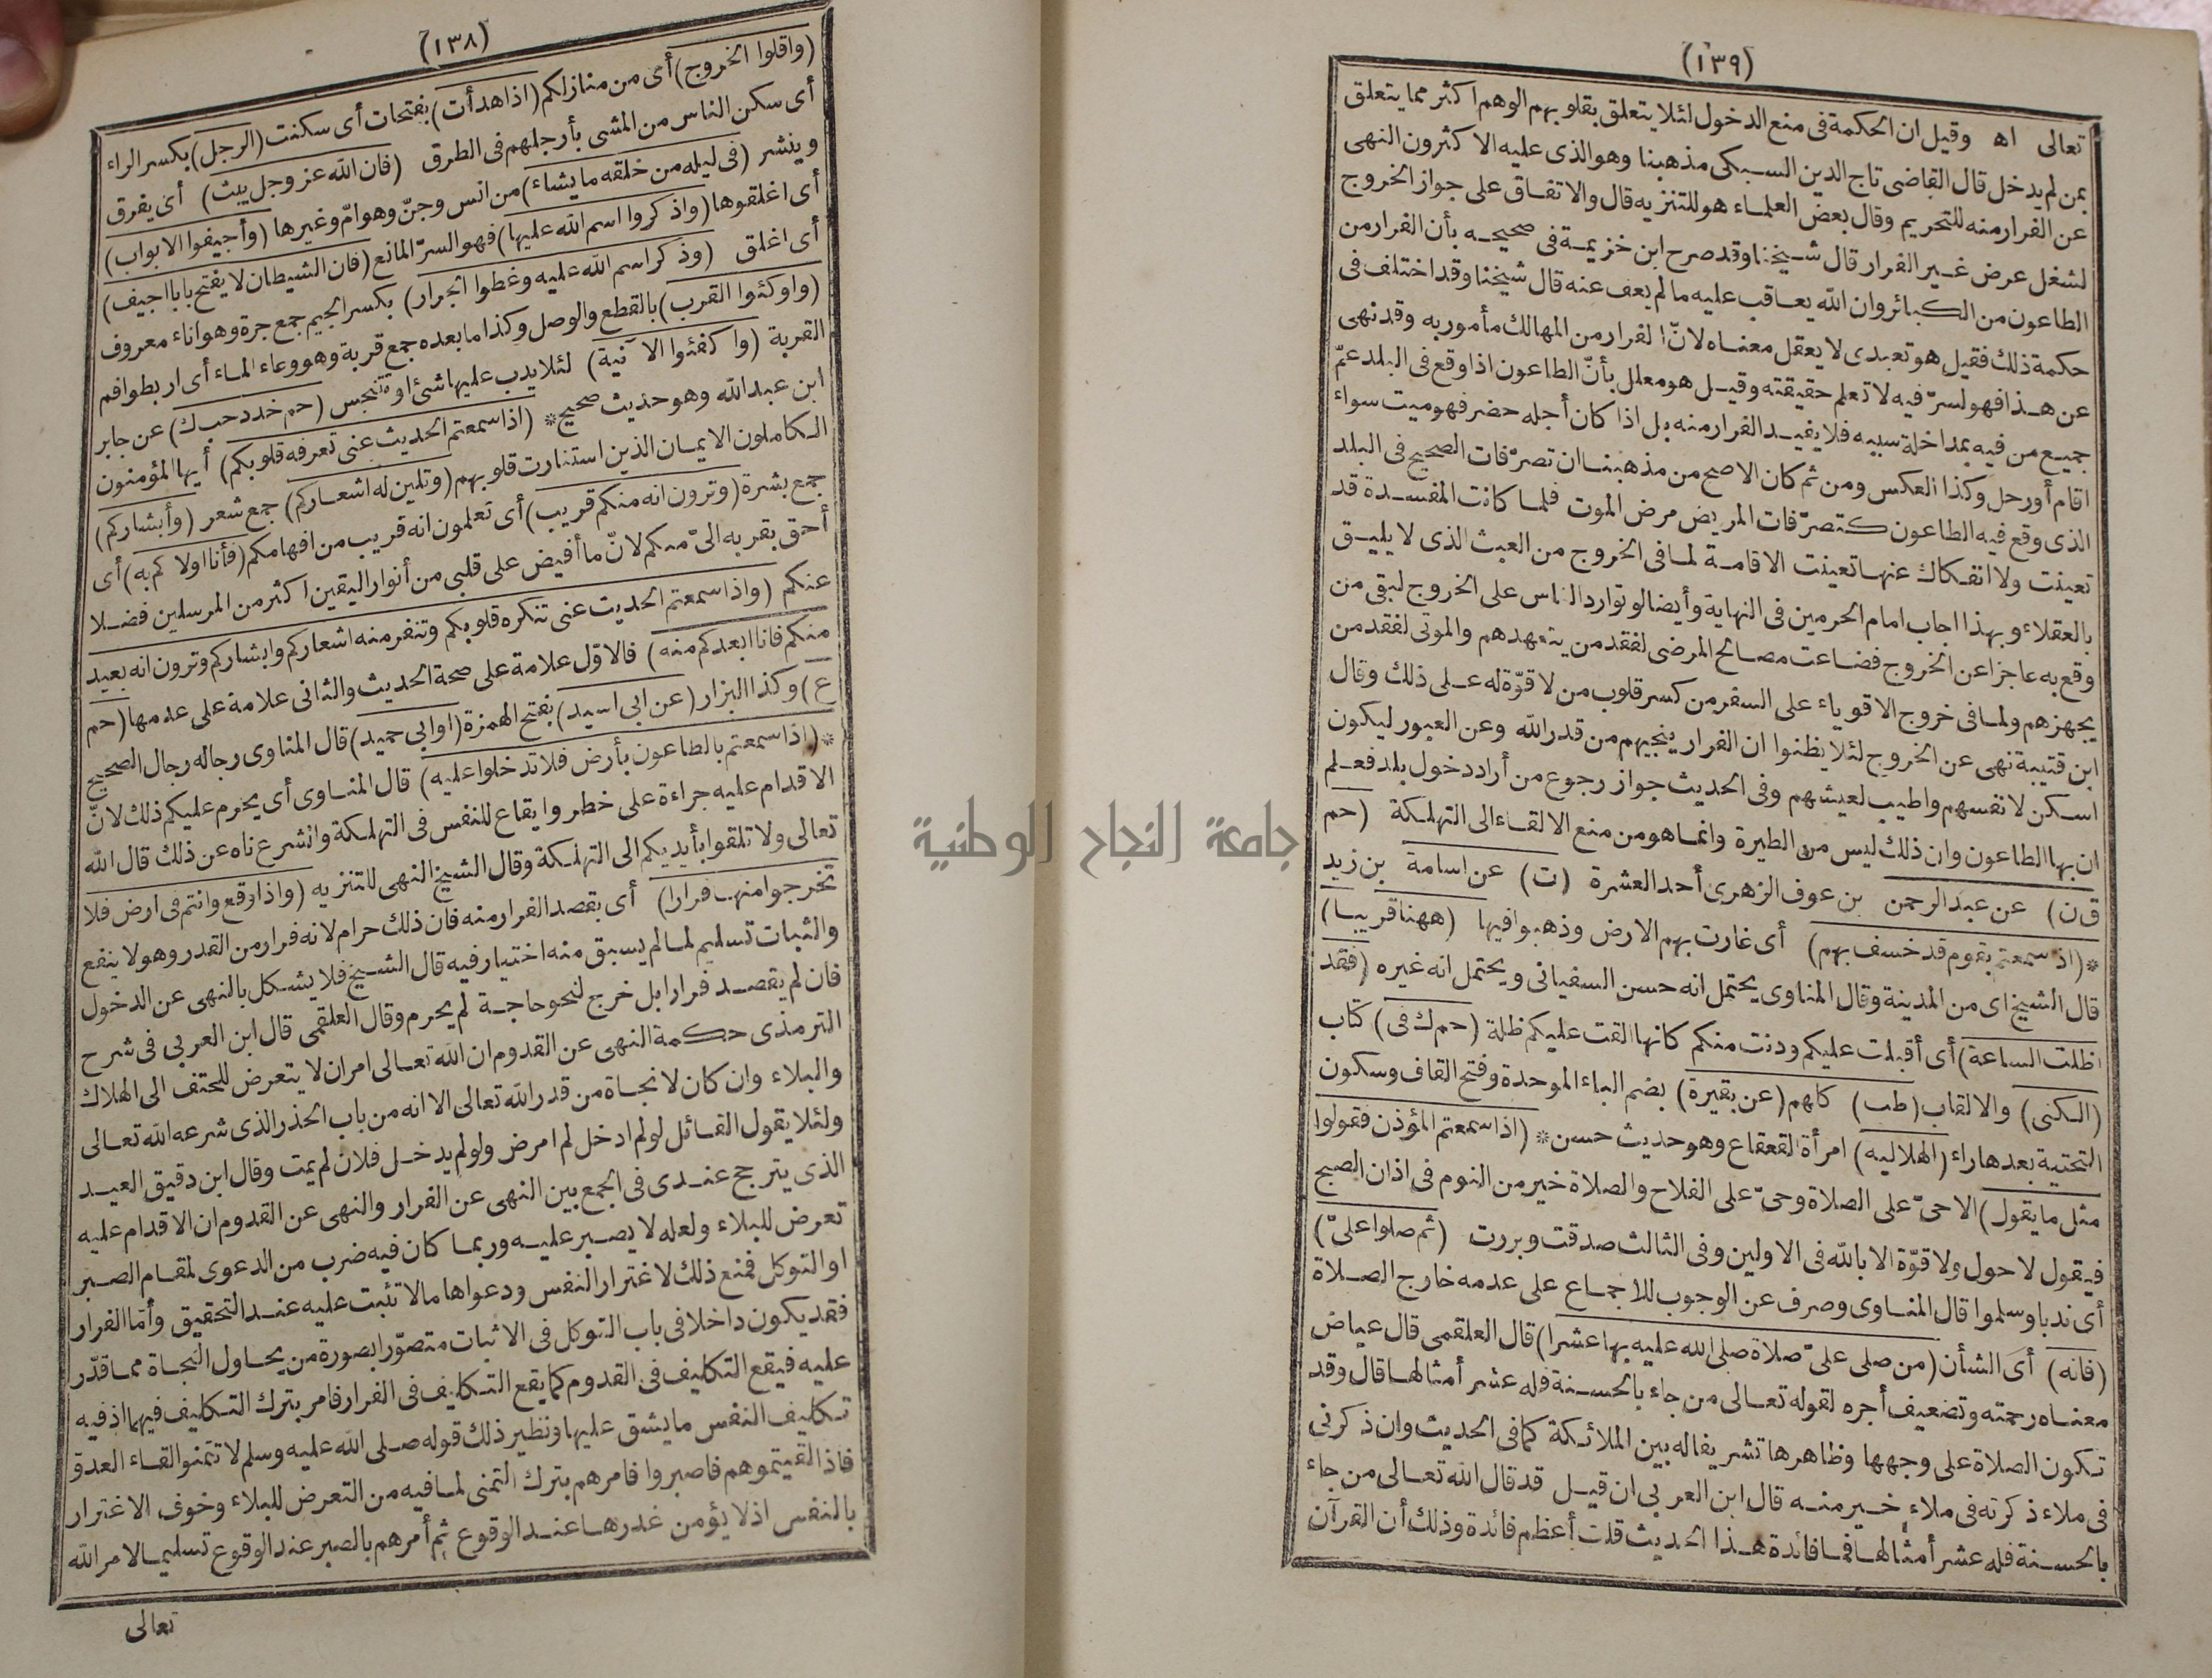 (١٣٨)
(واقلوا الخروج) أى من منازلكم (اذا هدأت) بفتحات أى سكنت (الرجل) بكسر الراء
أى سكن الناس من المشى بأرجلهم فى الطرق (فان الله عز وجل يبث) أى يفرق
وينشر (فى ليله من خلقه ما يشاء) من انس وجنّ وهوامّ وغيرها (وأجيفوا الابواب)
أى اغلقوها (واذكروا اسم الله عليها) فهو السرّ المانع (فان الشيطان لا يفتح بابا اجيف)
أى اغلق (وذكر اسم الله عليه وغطوا الجرار) بكسر الجيم جمع جرة وهو اناء معروف
(واوكئوا القرب) بالقطع والوصل وكذا ما بعده جمع قربة وهو وعاء الماء أى اربطوا فم
القربة (واكفئوا الآنية) لئلا يدب عليها شئ او تتنجس (حم خد حب ك) عن جابر
ابن عبد الله وهو حديث صحيح * (اذا سمعتم الحديث عنى تعرفه قلوبكم) أيها المؤمنون
الكاملون الايمان الذين استنارت قلوبهم (وتلين له اشعاركم) جمع شعر (وأبشاركم)
جمع بشرة (وترون انه منكم قريب) أى تعلمون انه قريب من افهامكم (فأنا اولاكم به) أى
أحق بقربه الىّ منكم لانّ ما أفيض على قلبى من أنوار اليقين اكثر من المرسلين فضلا
عنكم (واذا سمعتم الحديث عنى تنكره قلوبكم وتنفر منه اشعاركم وابشاركم وترون انه بعيد
منكم فانا ابعدكم منه) فالاوّل علامة على صحة الحديث والثانى علامة على عدمها (حم
ع) وكذا البزار (عن ابى اسيد) بفتح الهمزة (او ابى حميد) قال المناوى رجاله رجال الصحيح
* (اذا سمعتم بالطاعون بأرض فلا تدخلوا عليه) قال المناوى أى يحرم عليكم ذلك لانّ
الاقدام عليه جراءة على خطر وايقاع للنفس فى التهلكة والشرع ناه عن ذلك قال الله
تعالى ولا تلقوا بأيديكم الى التهلكة وقال الشيخ النهى للتنزيه (واذا وقع وانتم فى ارض فلا
تخرجوا منها فرارا) أى بقصد الفرار منه فان ذلك حرام لانه فرار من القدر وهو لا ينفع
والثبات تسليم لما لم يسبق منه اختيار فيه قال الشيخ فلا يشكل بالنهى عن الدخول
فان لم يقصد فرارا بل خرج لنحو حاجة لم يحرم وقال العلقمى قال ابن العربى فى شرح
الترمذى حكمة النهى عن القدوم ان الله تعالى امر ان لا يتعرض للحتف الى الهلاك
والبلاء وان كان لا نجاة من قدر الله تعالى الا انه من باب الحذر الذى شرعه الله تعالى
ولئلا يقول القائل لو لم ادخل لم امرض ولو لم يدخل فلان لم يمت وقال ابن دقيق العيد
الذى يترجح عندى فى الجمع بين النهى عن الفرار والنهى عن القدوم ان الاقدام عليه
تعرض للبلاء ولعله لا يصبر عليه وربما كان فيه ضرب من الدعوى لمقام الصبر
او التوكل فمنع ذلك لاغترار النفس ودعواها ما لا تثبت عليه عند التحقيق وأما الفرار
فقد يكون داخلا فى باب التوكل فى الاثبات متصوّرا بصورة من يحاول النجاة مما قدّر
عليه فيقع التكليف فى القدوم كما يقع التكليف فى الفرار فامر بترك التكليف فيهما اذ فيه
تكليف النفس ما يشق عليها ونظير ذلك قوله صلى الله عليه وسلم لا تتمنوا لقاء العدوّ
فاذا لقيتموهم فاصبروا فامرهم بترك التمنى لما فيه من التعرض للبلاء وخوف الاغترار
بالنفس اذ لا يؤمن غدرها عند الوقوع ثم أمرهم بالصبر عند الوقوع تسليما لامر الله
تعالى
(١٣٩)
تعالى اه وقيل ان الحكمة فى منع الدخول لئلا يتعلق بقلوبهم الوهم اكثر مما يتعلق
بمن لم يدخل قال القاضى تاج الدين السبكى مذهبنا وهو الذى عليه الاكثرون النهى
عن الفرار منه للتحريم وقال بعض العلماء هو للتنزيه قال والاتفاق على جواز الخروج
لشغل عرض غير الفرار قال شيخنا وقد صرح ابن خزيمة فى صحيحه بأن الفرار من
الطاعون من الكبائر وان الله يعاقب عليه ما لم يعف عنه قال شيخنا وقد اختلف فى
حكمة ذلك فقيل هو تعبدى لا يعقل معناه لانّ الفرار من المهالك مأمور به وقد نهى
عن هذا فهو لسرّ فيه لا تعلم حقيقته وقيل هو معلل بأنّ الطاعون اذا وقع فى البلد عمّ
جميع من فيه بمداخلة سببه فلا يفيد الفرار منه بل اذا كان أجله حضر فهو ميت سواء
اقام أو رحل وكذا العكس ومن ثم كان الاصح من مذهبنا ان تصرّفات الصحيح فى البلد
الذى وقع فيه الطاعون كتصرّفات المريض مرض الموت فلما كانت المفسدة قد
تعينت ولا انفكاك عنها تعينت الاقامة لما فى الخروج من العبث الذى لا يليق
بالعقلاء وبهذا اجاب امام الحرمين فى النهاية وأيضا لو توارد الناس على الخروج لبقى من
وقع به عاجزا عن الخروج فضاعت مصالح المرضى لفقد من يتعهدهم والموتى لفقد من
يجهزهم ولما فى خروج الاقوياء على السفر من كسر قلوب من لا قوّة له على ذلك وقال
ابن قتيبة نهى عن الخروج لئلا يظنوا ان الفرار ينجيهم من قدر الله وعن العبور ليكون
اسكن لانفسهم واطيب لعيشهم وفى الحديث جواز رجوع من أراد دخول بلد فعلم
ان بها الطاعون وان ذلك ليس من الطيرة وانما هو من منع الالقاء الى التهلكة (حم
ق ن) عن عبد الرحمن بن عوف الزهرى أحد العشرة (ت) عن اسامة بن زيد
* (اذا سمعتم بقوم قد خسف بهم) أى غارت بهم الارض وذهبوا فيها (ههنا قريبا)
قال الشيخ اى من المدينة وقال المناوى يحتمل انه حسن السفيانى ويحتمل انه غيره (فقد
اظلت الساعة) أى أقبلت عليكم ودنت منكم كانها القت عليكم ظلة (حم ك فى) كتاب
(الكنى) والالقاب (طب) كلهم (عن بقيرة) بضم الباء الموحدة وفتح القاف وسكون
التحتية بعدها راء (الهلاليه) امرأة القعقاع وهو حديث حسن * (اذا سمعتم المؤذن فقولوا
مثل ما يقول) الا حىّ على الصلاة وحىّ على الفلاح والصلاة خير من النوم فى اذان الصبح
فيقول لا حول ولا قوّة الا بالله فى الاولين وفى الثالث صدقت وبررت (ثم صلوا علىّ)
أى ندبا وسلموا قال المناوى وصرف عن الوجوب للاجماع على عدمه خارج الصلاة
(فانه) أى الشأن (من صلى علىّ صلاة صلى الله عليه بها عشرا) قال العلقمى قال عياض
معناه رحمته وتضعيف أجره لقوله تعالى من جاء بالحسنة فله عشر أمثالها قال وقد
تكون الصلاة على وجهها وظاهرها تشريفا له بين الملائكة كما فى الحديث وان ذكرنى
فى ملاء ذكرته فى ملاء خير منه قال ابن العربى ان قيل قد قال الله تعالى من جاء
بالحسنة فله عشر أمثالها فما فائدة هذا الحديث قلت أعظم فائدة وذلك أن القرآن
جامعة النجاح الوطنية